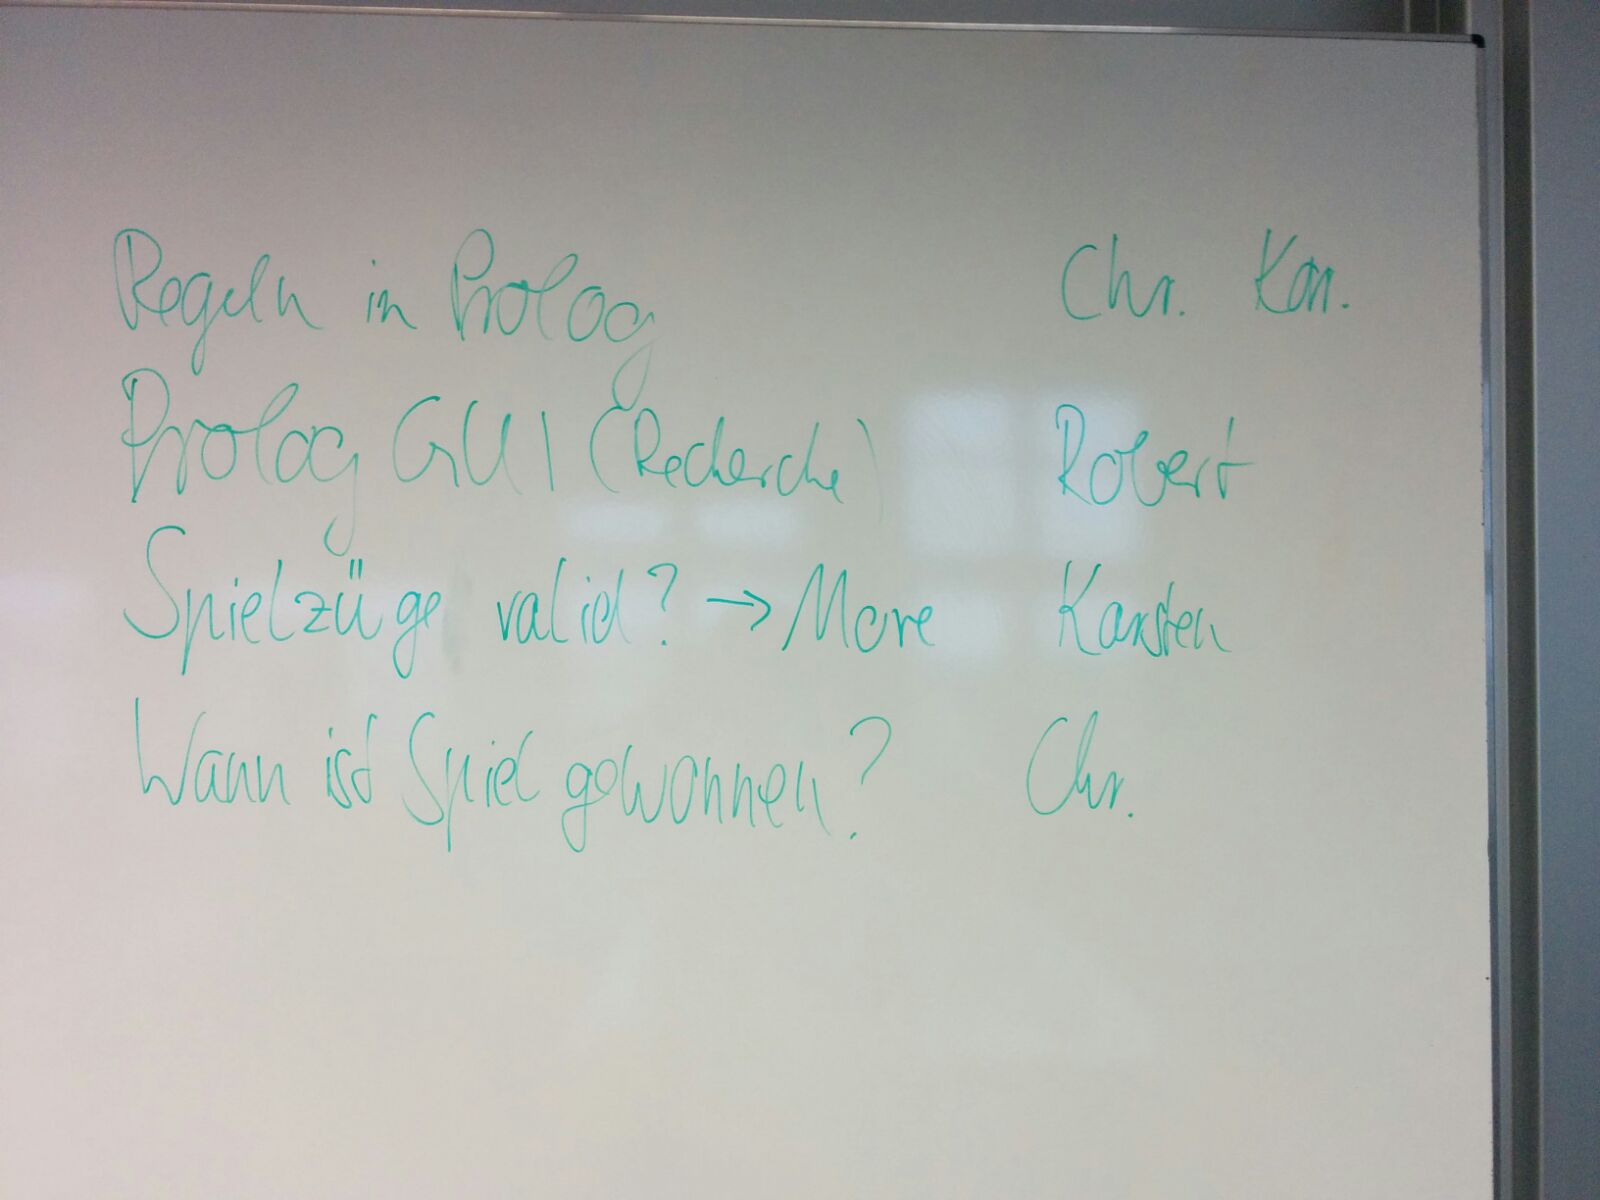 Regeln in Prolog Chr. Kar.
Prolog GUI (Recherche) Robert
Spielzüge valid? → Move Karsten
Wann ist Spiel gewonnen? Chr.